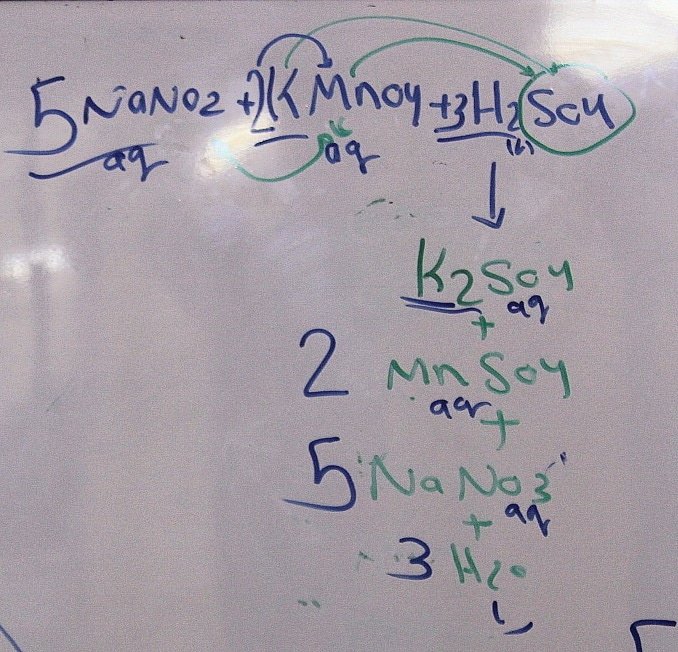 5NaNO2 + 2KMnO4 + 3H2SO4
aq aq (l)
↓
K2SO4
aq
+
2 MnSO4
aq
+
5 NaNO3
aq
+
3 H2O
L